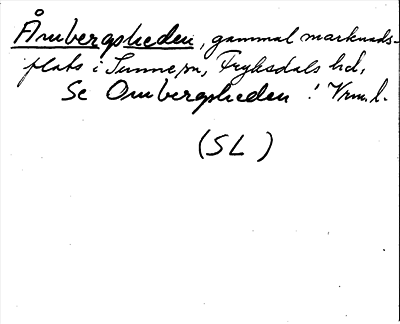 Åmbergsheden, gammal marknads-
plats i Sunne sn, Fryksdals hd,
Se Ombergsheden! Vrml.
(SL)